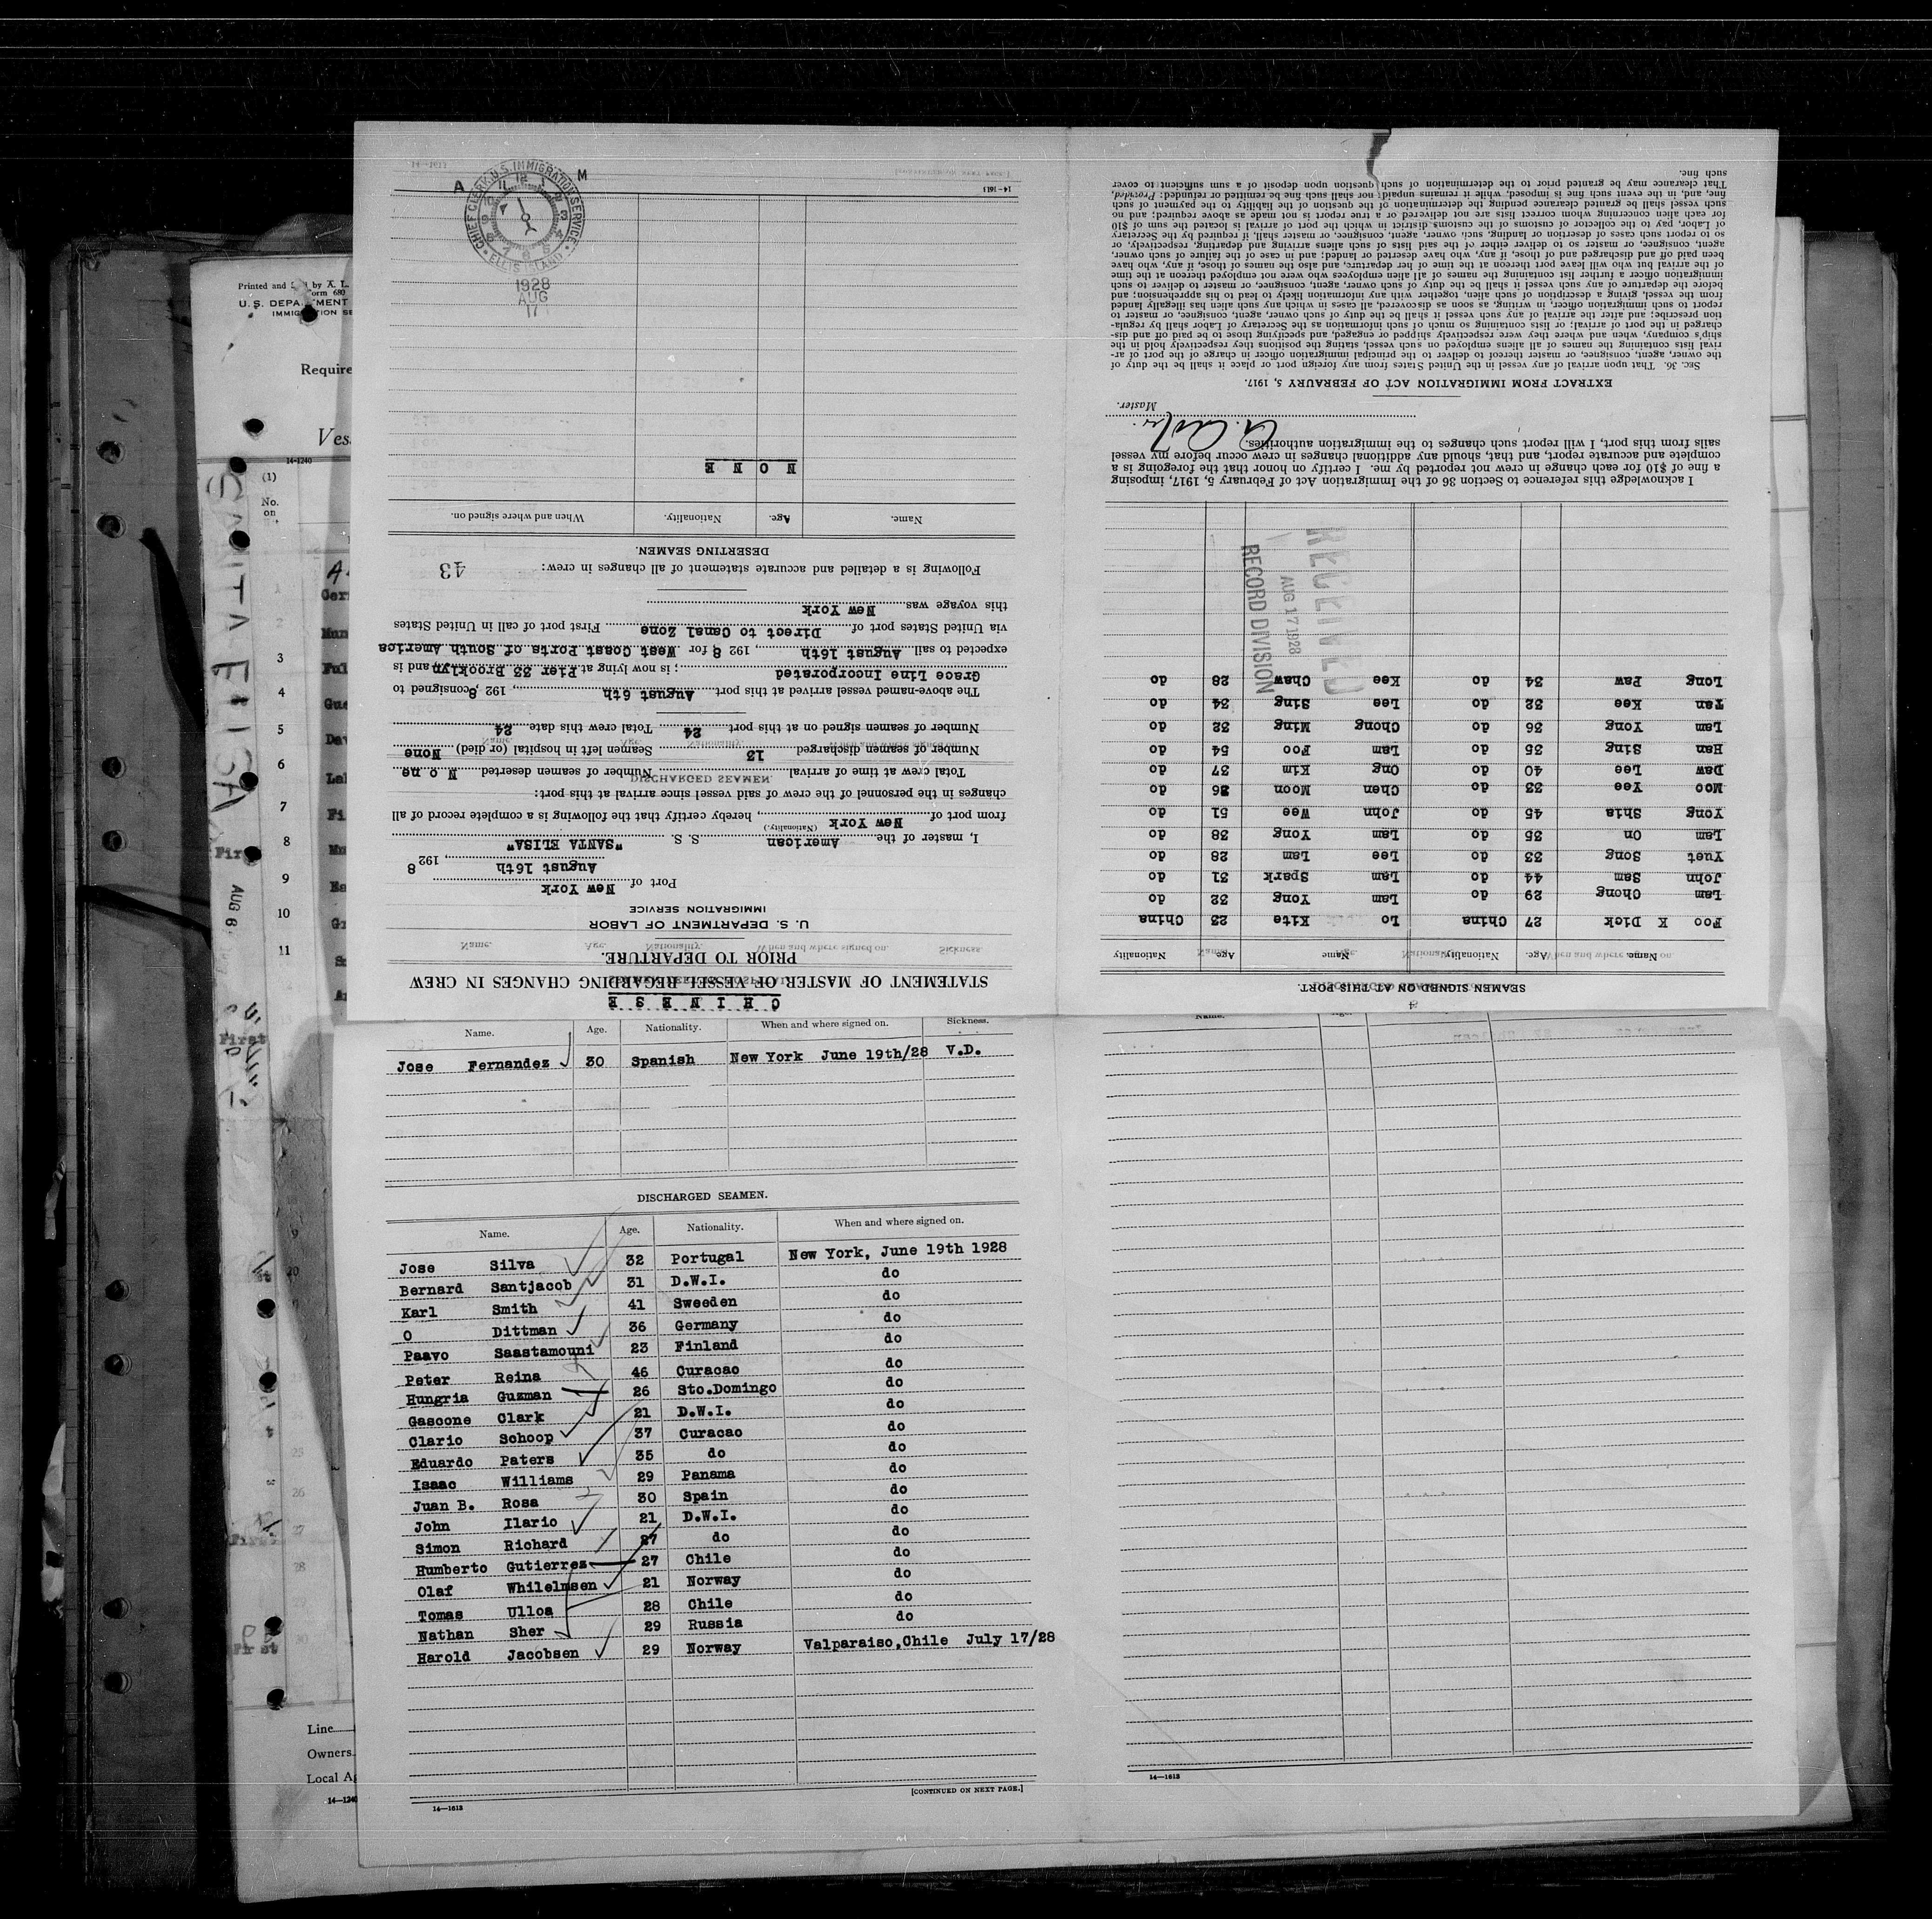 Printed and by A. L.
Form 680
U. S. DEPARTMENT
IMMIGRATION SE
Require
Ves
14-1240
(1)
No.
on
3
4
5
6
7
8
9
10
11
SANTA ELISA
AUG 6
First
First
First
Line
Owners
Local Ag
14-1240
CHINESE
STATEMENT OF MASTER OF VESSEL REGARDING CHANGES IN CREW
PRIOR TO DEPARTURE.
U. S. DEPARTMENT OF LABOR
IMMIGRATION SERVICE
Port of New York
August 16th, 192 8
I, master of the American S. S. "SANTA ELISA"
(Nationality.)
from port of New York, hereby certify that the following is a complete record of all
changes in the personnel of the crew of said vessel since arrival at this port:
Total crew at time of arrival Number of seamen deserted N o ne
Number of seamen discharged 13 Seamen left in hospital (or died) None
Number of seamen signed on at this port 24 Total crew this date 24
The above-named vessel arrived at this port August 6th, 192 8, consigned to
Grace Line Incorporated; is now lying at Pier 33 Brooklyn and is
expected to sail August 16th, 192 8 for West Coast Ports of South America
via United States port of Direct to Canal Zone First port of call in United States
this voyage was New York
Following is a detailed and accurate statement of all changes in crew: 43
DESERTING SEAMEN.
Name. Age. Nationality. When and where signed on.
N O N E
14-1613
CHIEF CLERK U.S. IMMIGRATION SERVICE
ELLIS ISLAND
A M
1928
AUG
17
SEAMEN SIGNED ON AT THIS PORT.
Name. Age. Nationality. Name Age. Nationality
Foo K Dick 27 China Lo Kite 23 China
Lam Chong 29 do Lam Yong 32 do
John Sam 44 do Lam Spark 31 do
Yuet Song 33 do Lee Lam 28 do
Lam On 35 do Lam Yong 38 do
Yong Shia 45 do John Wee 51 do
Moo Yee 33 do Chen Moon 36 do
Daw Lee 40 do Ong Kim 37 do
Han Sing 35 do Lam Foo 54 do
Lam Yong 36 do Chong Ming 32 do
Tan Kee 32 do Lee Sing 34 do
Long Paw 34 do Kee Chaw 28 do
RECEIVED
AUG 17 1928
RECORD DIVISION
I acknowledge this reference to Section 36 of the Immigration Act of February 5, 1917, imposing
a fine of $10 for each change in crew not reported by me. I certify on honor that the foregoing is a
complete and accurate report, and that, should any additional changes in crew occur before my vessel
sails from this port, I will report such changes to the immigration authorities.
Master.
EXTRACT FROM IMMIGRATION ACT OF FEBRAURY 5, 1917.
SEC. 36. That upon arrival of any vessel in the United States from any foreign port or place it shall be the duty of
the owner, agent, consignee, or master thereof to deliver to the principal immigration officer in charge of the port of ar-
rival lists containing the names of all aliens employed on such vessel, stating the positions they respectively hold in the
ship's company, when and where they were respectively shipped or engaged, and specifying those to be paid off and dis-
charged in the port of arrival; or lists containing so much of such information as the Secretary of Labor shall by regula-
tion prescribe; and after the arrival of any such vessel it shall be the duty of such owner, agent, consignee, or master to
report to such immigration officer, in writing, as soon as discovered, all cases in which any such alien has illegally landed
from the vessel, giving a description of such alien, together with any information likely to lead to his apprehension; and
before the departure of any such vessel it shall be the duty of such owner, agent, consignee, or master to deliver to such
immigration officer a further list containing the names of all alien employees who were not employed thereon at the time
of the arrival but who will leave port thereon at the time of her departure, and also the names of those, if any, who have
been paid off and discharged and of those, if any, who have deserted or landed; and in case of the failure of such owner,
agent, consignee, or master so to deliver either of the said lists of such aliens arriving and departing, respectively, or
so to report such cases of desertion or landing, such owner, agent, consignee, or master shall, if required by the Secretary
of Labor, pay to the collector of customs of the customs district in which the port of arrival is located the sum of $10
for each alien concerning whom correct lists are not delivered or a true report is not made as above required; and no
such vessel shall be granted clearance pending the determination of the question of the liability to the payment of such
fine, and, in the event such fine is imposed, while it remains unpaid; nor shall such fine be remitted or refunded: Provided,
That clearance may be granted prior to the determination of such question upon deposit of a sum sufficient to cover
such fine.
Name. Age. Nationality. When and where signed on. Sickness.
Jose Fernandez 30 Spanish New York June 19th/28 V.D.
DISCHARGED SEAMEN.
Name. Age. Nationality. When and where signed on.
Jose Silva 32 Portugal New York, June 19th 1928
Bernard Santjacob 31 D.W.I. do
Karl Smith 41 Sweeden do
O Dittman 36 Germany do
Paavo Saastamouni 23 Finland do
Peter Reina 46 Curacao do
Hungria Guzman 26 Sto.Domingo do
Gascone Clark 21 D.W.I. do
Clario Schoop 37 Curacao do
Eduardo Paters 35 do do
Isaac Williams 29 Panama do
Juan B. Rosa 30 Spain do
John Ilario 21 D.W.I. do
Simon Richard 27 do do
Humberto Gutierrez 27 Chile do
Olaf Whilelmsen 21 Norway do
Tomas Ulloa 28 Chile do
Nathan Sher 29 Russia do
Harold Jacobsen 29 Norway Valparaiso,Chile July 17/28
[CONTINUED ON NEXT PAGE.]
14—1613
14—1613